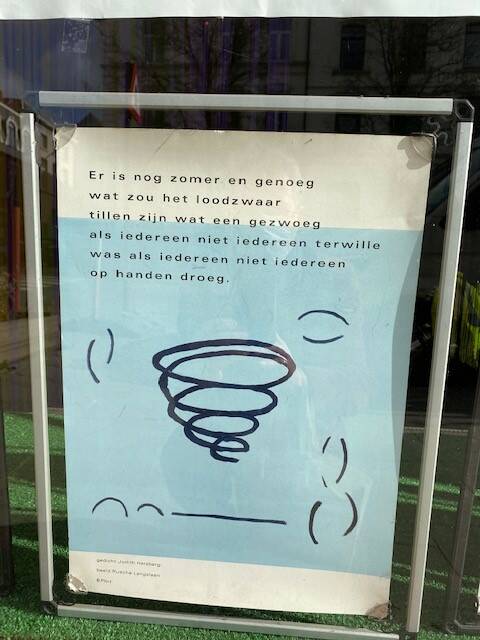 Er is nog zomer en genoeg
wat zou het loodzwaar
tillen zijn wat een gezwoeg
als iedereen niet iedereen terwille
was als iedereen niet iedereen
op handen droeg.
gedicht Judith Herzberg
beeld Rusche Langeleen